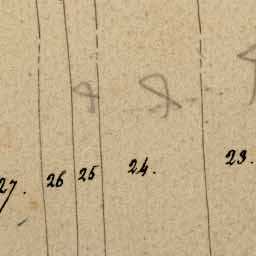 27. 26 25 24. 23.